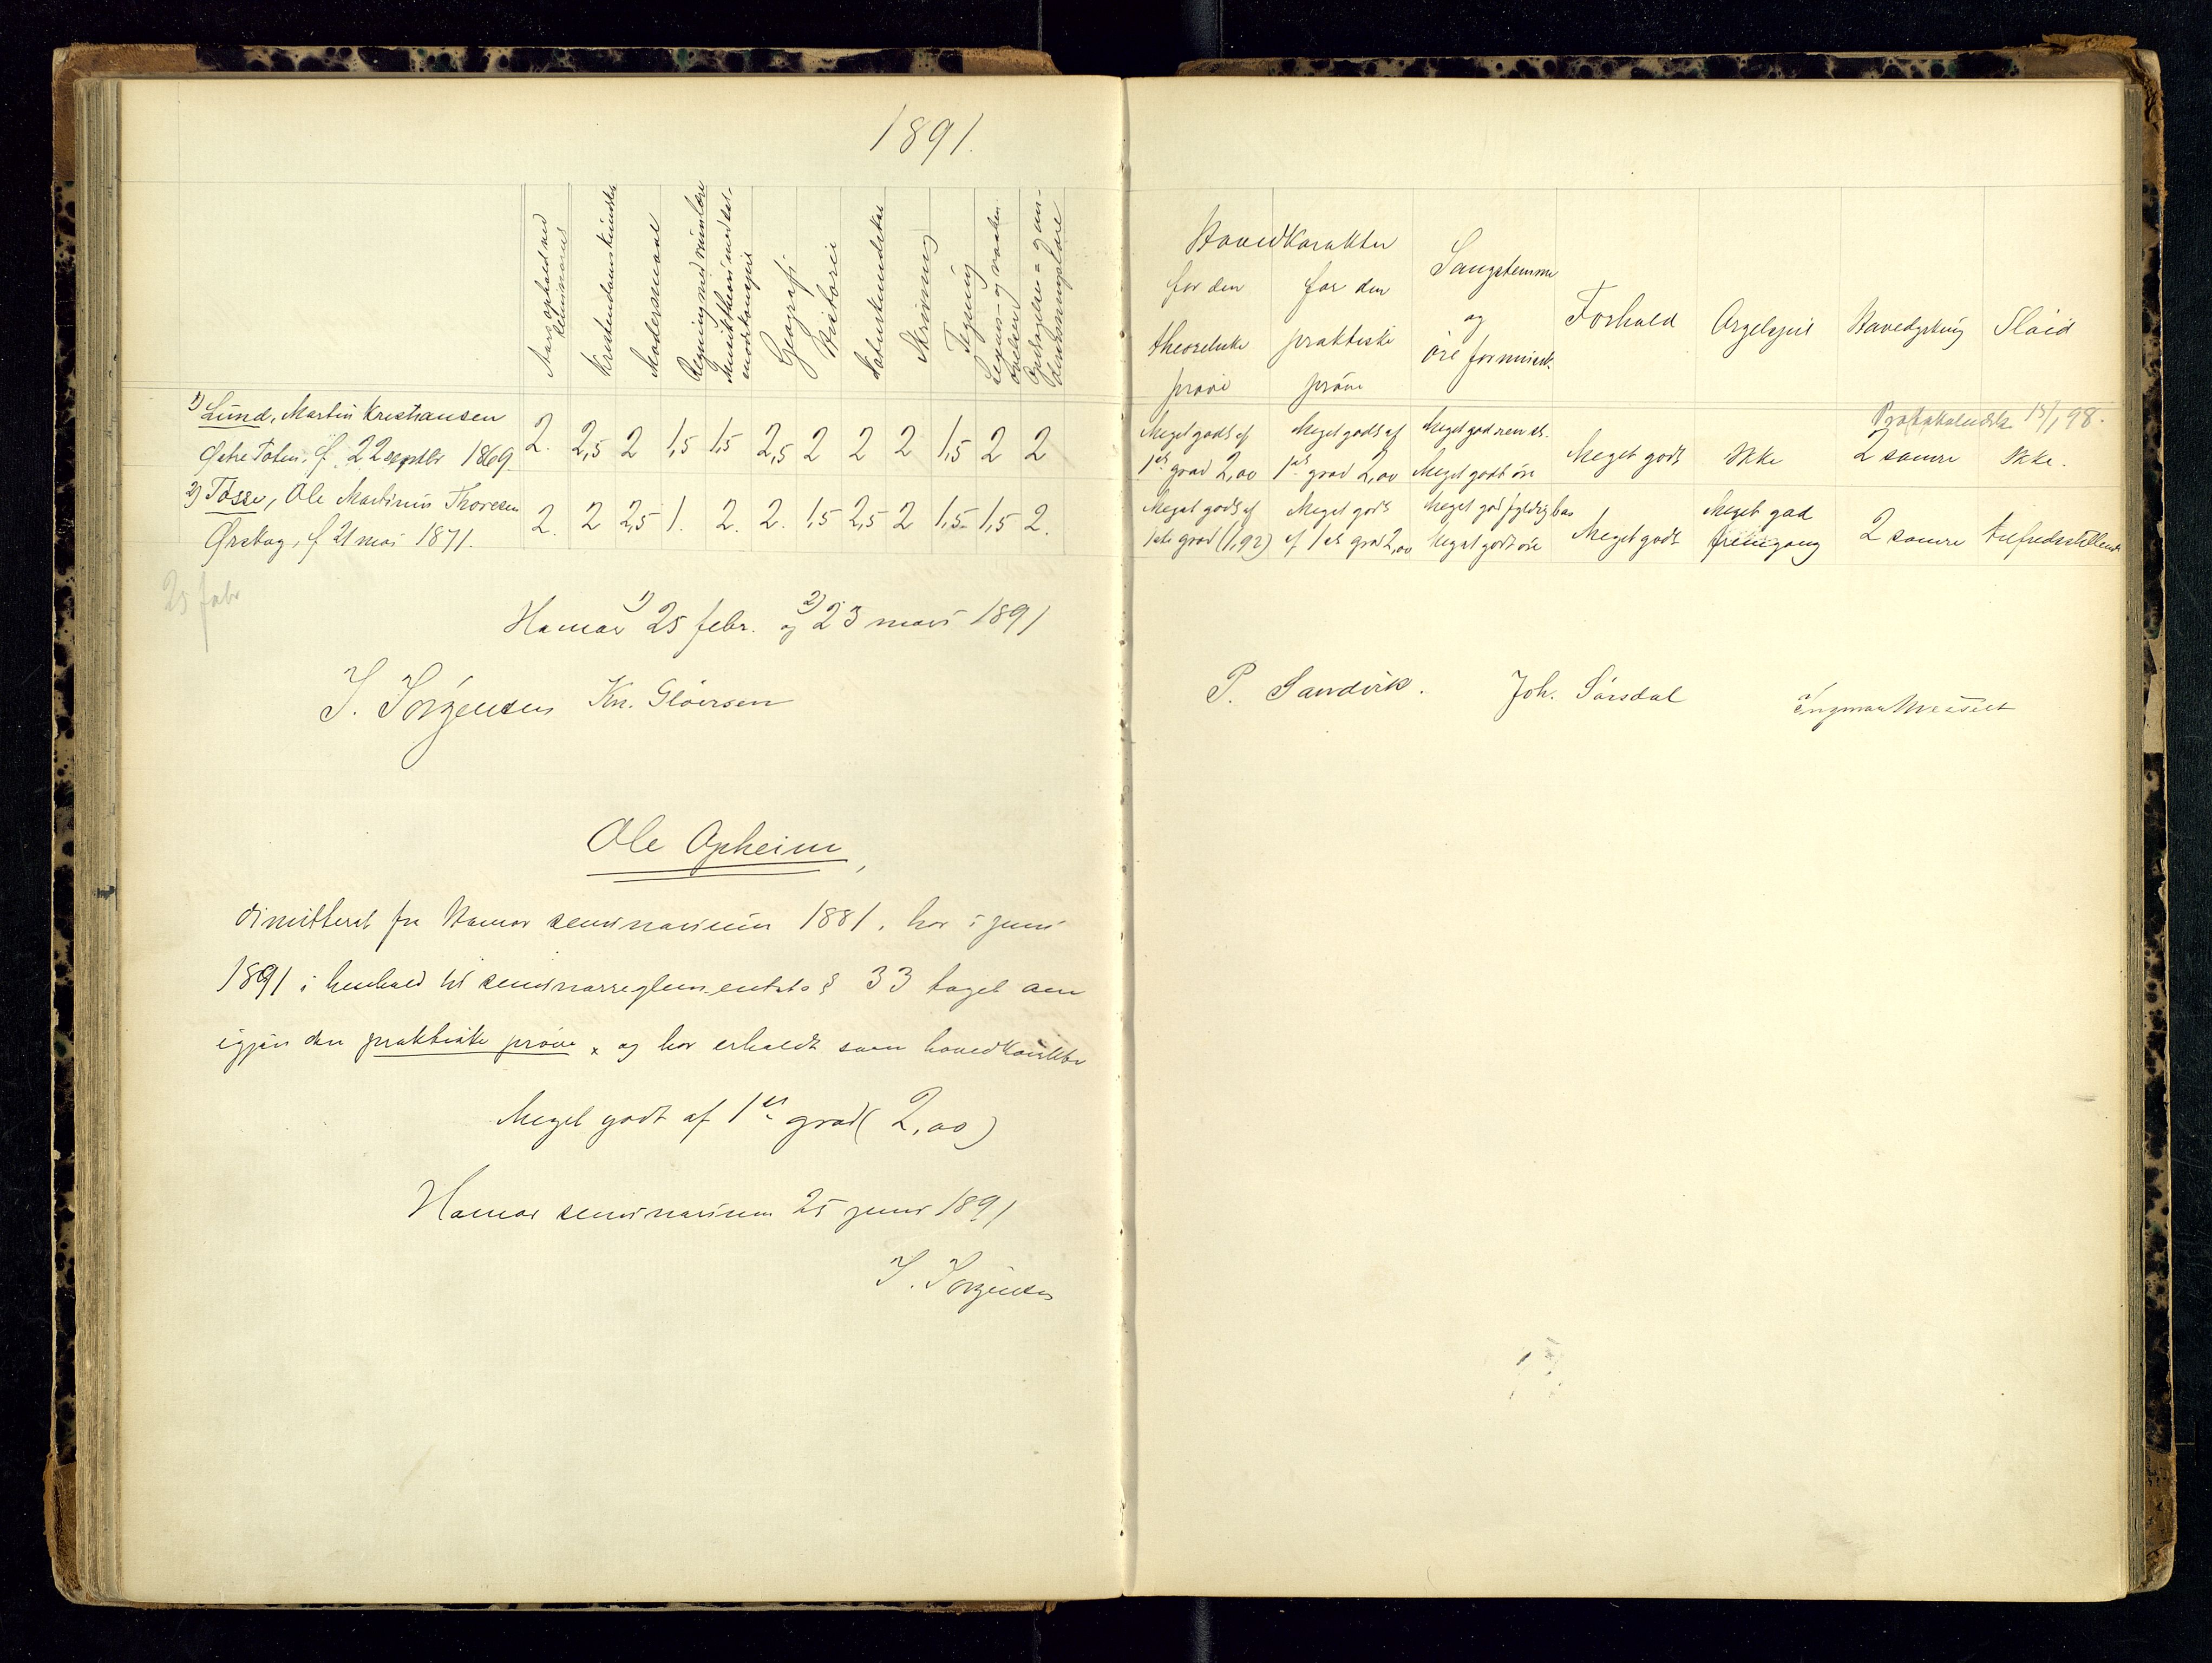 1891.
Aars ophold ved seminariet
Kristendomskundskab
Modersmaal
Regning med rumlære
Musiktheori med
Geografi
Historie
Naturkundskab
Skrivning
Tegning
Legems- og vaaben-
øvelser
Opdragelses- og un-
dervisningslære
1) Lund, Martin Kristiansen
Østre Toten, f. 22 septbr 1869
2. 2,5 2 1,5 1,5 2,5 2 2 2 1,5 2 2
2) Tøsse, Ole Martinus Thoresen
Ørskog, f 21 mai 1871.
2. 2 2,5 1. 2. 2. 1,5 2,5 2 1,5 1,5 2.
25 febr
Hamar 1) 25 febr. og 2) 23 mars 1891
S. Sörgensen Kn. Gløersen
Ole Opheim,
dimitteret fra Hamar seminarium 1881, har i juni
1891 i henhold til seminarreglementets § 33 taget om
igjen den praktiske prøve, og har erholdt som hovedkarakter
Meget godt af 1ste grad (2,00)
Hamar seminarium 25 juni 1891
S. Sörgensen
Hovedkarakter
for den
theoretiske
prøve
for den
praktiske
prøve
Sangstemme
og
øre for musik.
Forhold
Orgelspil
Havedyrkning
Sløid
Protokoludsk. 15/1 98.
Meget godt af
1ste grad 2,00
Meget godt af
1ste grad 2,00
Meget god ren st.
Meget godt øre
Meget godt
Ikke
2 somre
Ikke.
Meget godt af
1ste grad (1,92)
Meget godt
af 1ste grad 2,00
Meget god fyldig bas
Meget godt øre
Meget godt
Meget god
fremgang
2 somre
tilfredsstillende
P. Sandvik.
Joh. Sörsdal